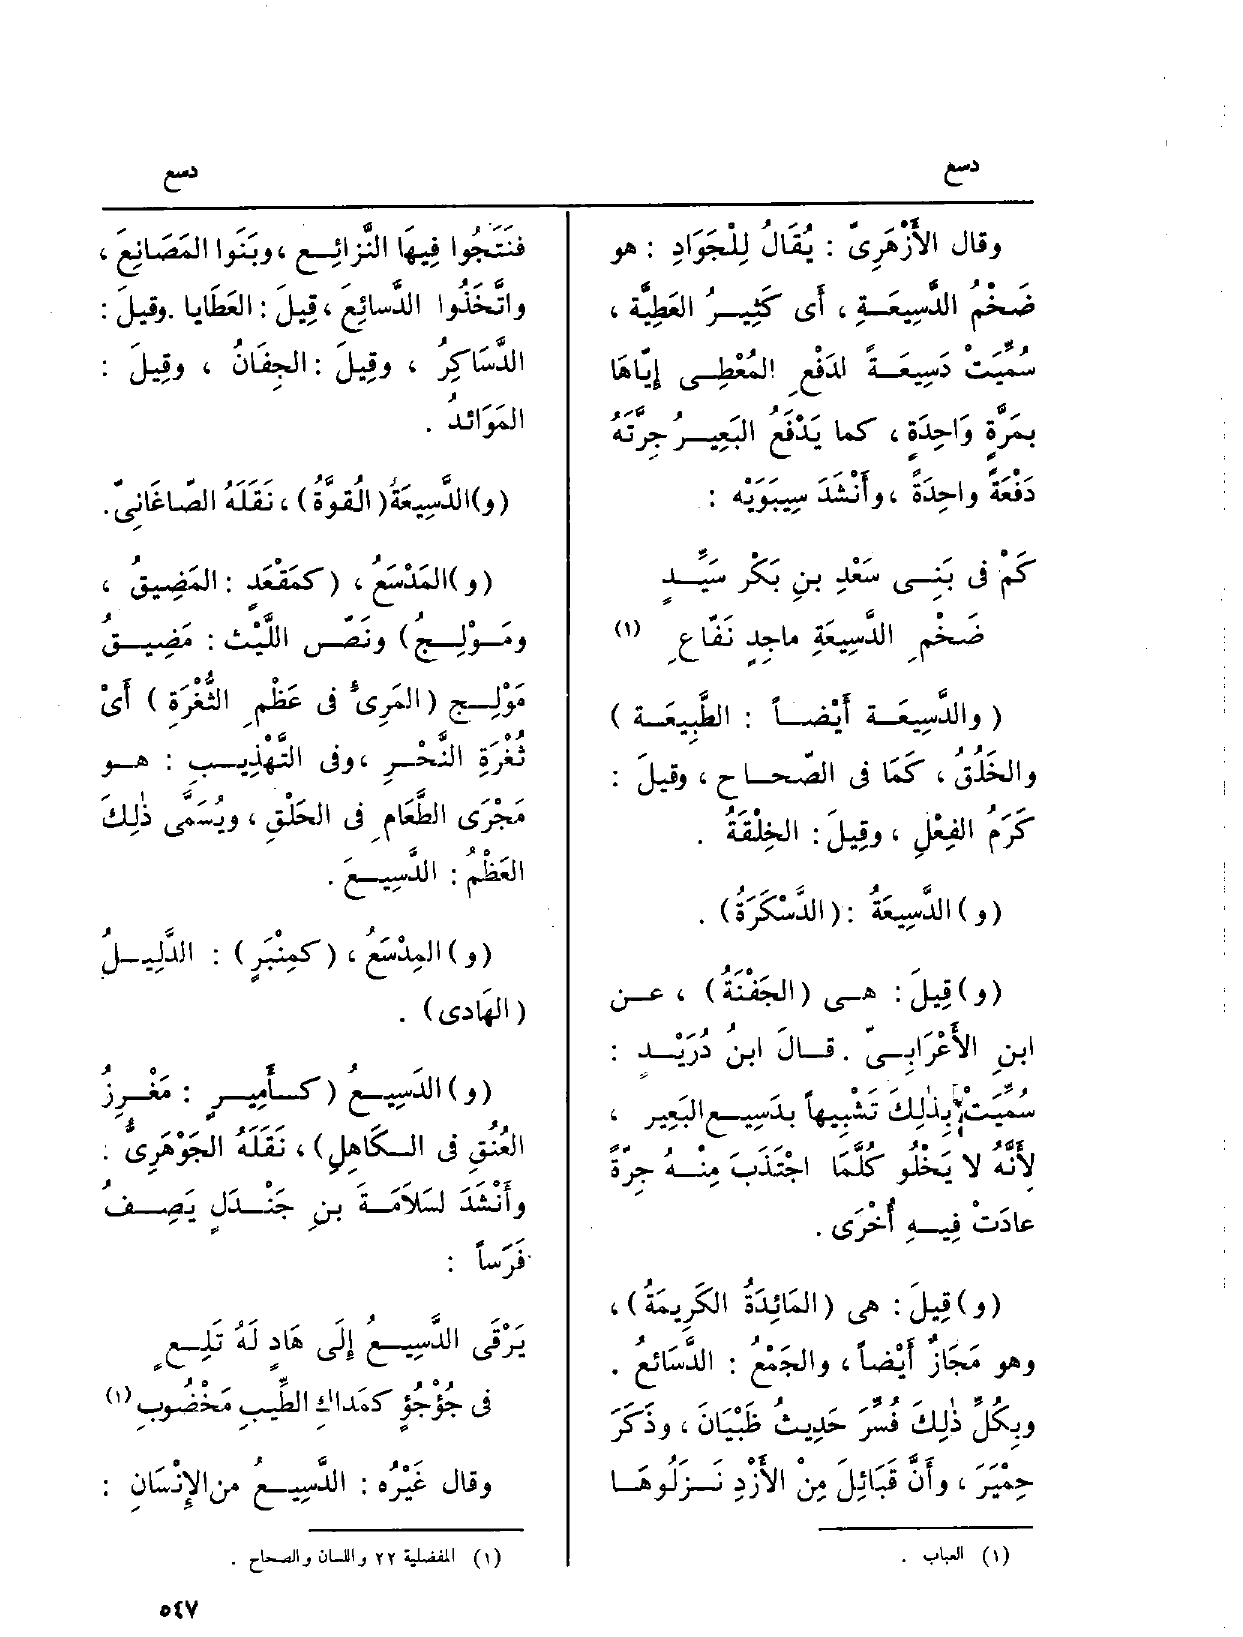 دسع
دسع
وقال الأَزْهَرِىّ : يُقَالُ لِلْجَوَادِ : هو
ضَخْمُ الدَّسِيعَـةِ ، أى كَثِيـرُ العَطِيَّة ،
سُمِّيَتْ دَسِيعَـةً لدَفْعِ المُعْطِى إِيّاهَا
بمَرَّةٍ وَاحِدَةٍ ، كما يَدْفَعُ البَعِيـرُ جِرَّتَهُ
دَفْعَةً واحِدَةً ، وأَنْشَدَ سِيبَوَيْه :
كَمْ فى بَنِـى سَعْدِ بنِ بَكْر سَيِّـدٍ
ضَخْمِ الدَّسِيعَةِ ماجِدٍ نَفّاعِ (١)
( والدَّسِيعَـة أَيْضـاً : الطَّبِيعَـة )
والخُلُقُ ، كَمَا فى الصّحـاح ، وقِيلَ :
كَرَمُ الفِعْلِ ، وقِيلَ : الخِلْقَةُ .
(و) الدَّسِيعَةُ : (الدَّسْكَرَةُ) .
(و) قِيلَ : هـى (الجَفْنَةُ) ، عـن
ابنِ الأَعْرَابِـىّ . قـالَ ابنُ دُرَيْـدٍ :
سُمِّيَتْ بِذٰلِكَ تَشْبِيهاً بدَسِيعِ البَعِيرِ ،
لِأَنَّهُ لا يَخْلُو كُلَّمَا اجْتَذَبَ مِنْـهُ جِرَّةً
عادَتْ فِيـهِ أُخْرَى .
(و) قِيلَ : هى (المَائِدَةُ الكَرِيمَةُ) ،
وهو مَجَازٌ أَيْضاً ، والجَمْعُ : الدَّسَائعُ .
وبِكُلِّ ذٰلِكَ فُسِّرَ حَدِيثُ ظَبْيَانَ ، وذَكَرَ
حِمْيَرَ ، وأَنَّ قَبَائِلَ مِنَ الأَزْدِ نَـزَلُوهَـا
(١) العباب .
فنَتَجُوا فِيهَا النَّزائِـع ، وبَنَوا المَصَانِعَ ،
واتَّخَذُوا الدَّسائِعَ ، قِيلَ : العَطَايا . وقيلَ :
الدَّسَاكِرُ ، وقِيلَ : الجِفَانُ ، وقِيلَ :
المَوَائدُ .
(و) الدَّسِيعَةُ (القُوَّةُ) ، نَقَلَهُ الصّاغَانِىّ .
(و) المَدْسَعُ ، (كمَقْعَدٍ : المَضِيقُ ،
ومَـوْلِـجُ) ونَصّ اللَّيْث : مَضِيـقُ
مَوْلِـجِ (المَرِىءُ فى عَظْمِ الثُّغْرَةِ ) أَىْ
ثُغْرَةِ النَّحْـرِ ، وفى التَّهْذِيـبِ : هـو
مَجْرَى الطَّعَامِ فى الحَلْقِ ، ويُسَمَّى ذٰلِكَ
العَظْمُ : الدَّسِيـعَ .
(و) المِدْسَعُ ، (كمِنْبَرٍ) : الدَّلِيـلُ
(الهَادى) .
(و) الدَّسِيـعُ (كـأَمِيـرٍ : مَغْـرِزُ
العُنُقِ فى الـكَاهِلِ) ، نَقَلَهُ الجَوْهَرِىُّ .
وأَنْشَدَ لسَلَامَـةَ بنِ جَنْـدَلٍ يَصِـفُ
فَرَساً :
يَرْقَى الدَّسِيـعُ إِلَى هَادٍ لَهُ تَلِـعٍ
فى جُؤْجُؤٍ كمَدَاكِ الطِّيبِ مَخْضُوبِ (١)
وقال غَيْرُه : الدَّسِيـعُ من الإِنْسَانِ :
(١) المفضلية ٢٢ واللسان والصحاح .
٥٤٧